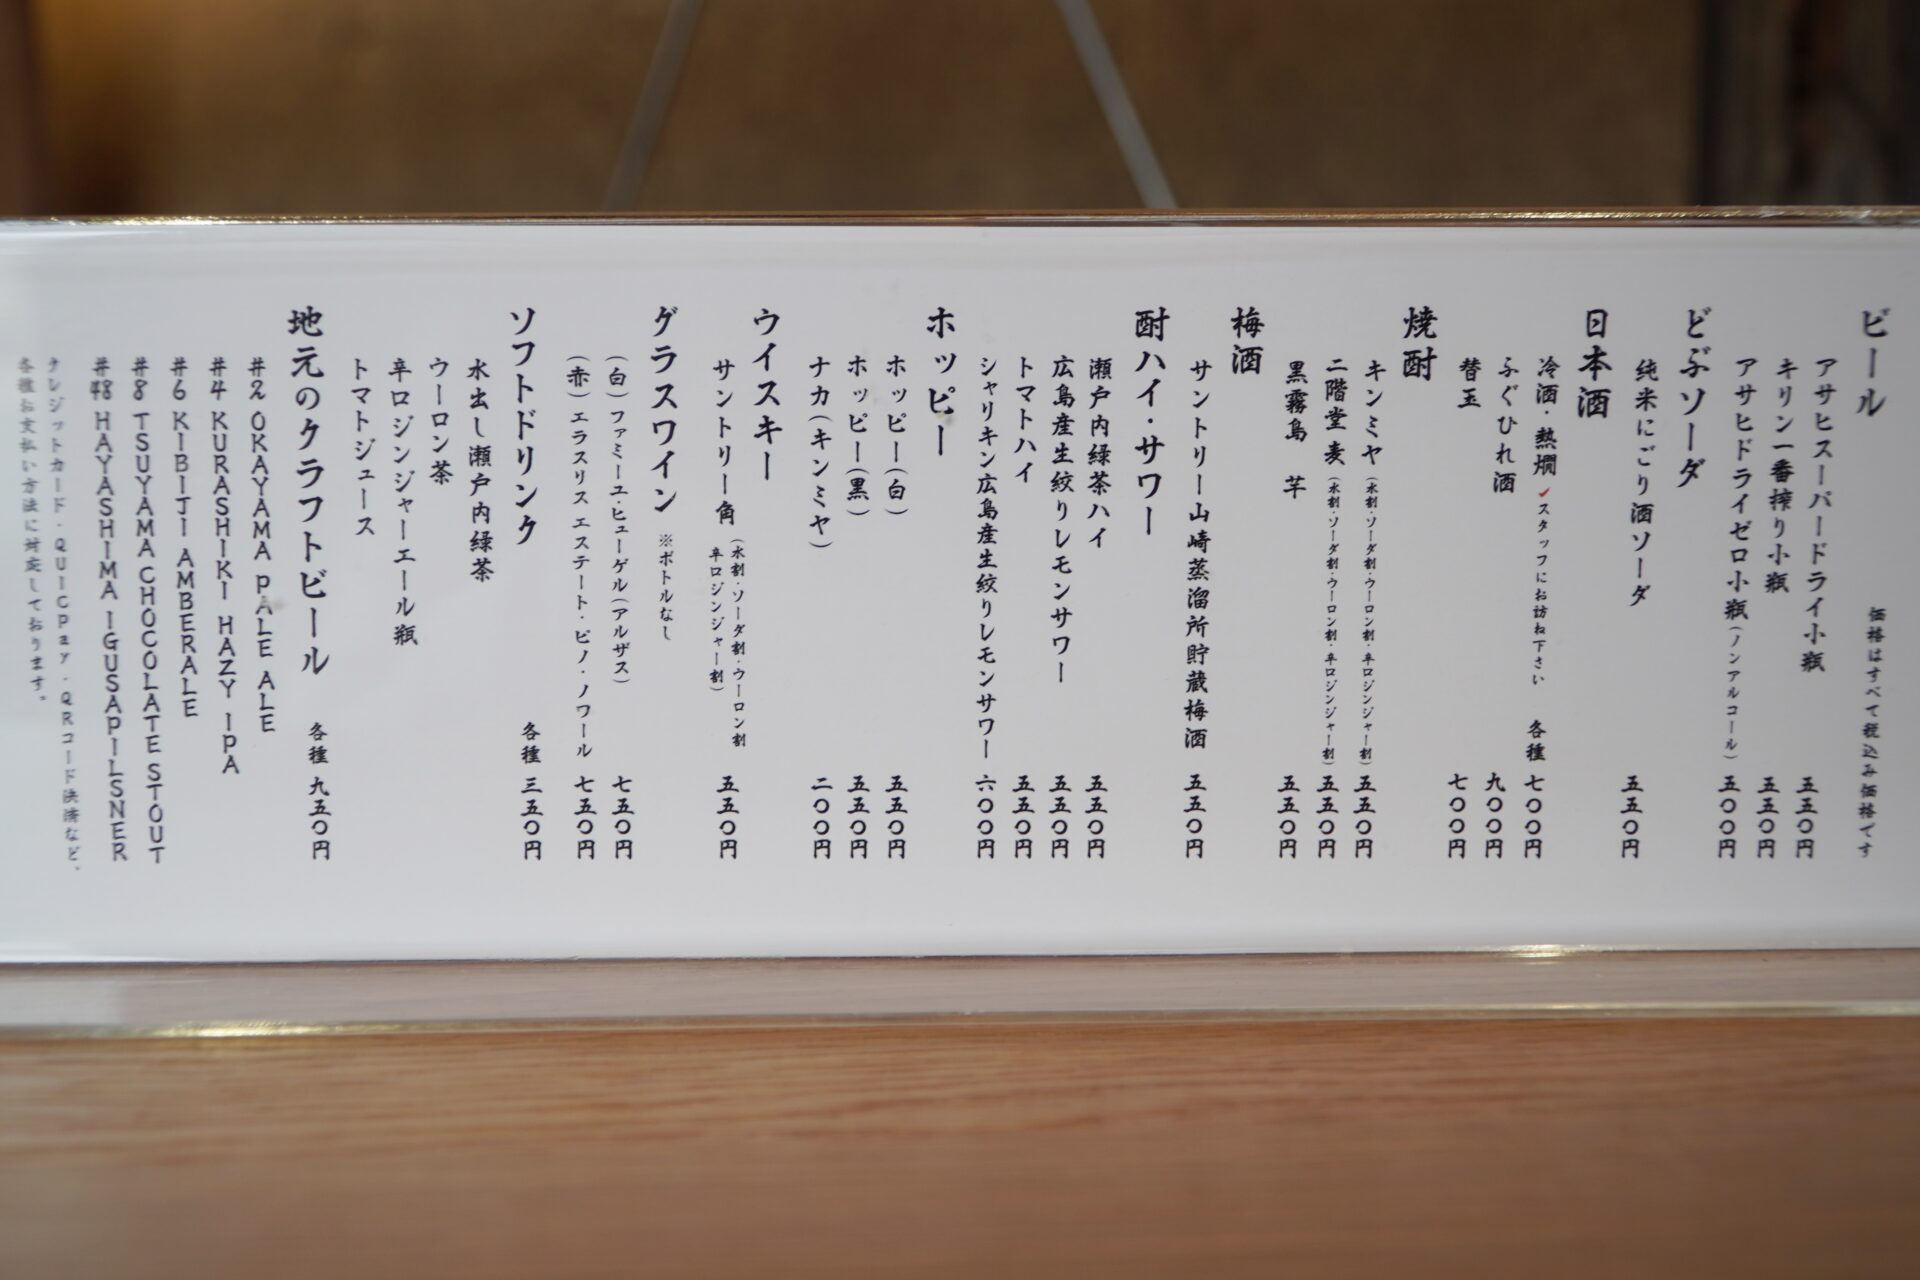 ビール
価格はすべて税込み価格です
アサヒスーパードライ小瓶 五五〇円
キリン一番搾り小瓶 五五〇円
アサヒドライゼロ小瓶(ノンアルコール) 五〇〇円
どぶソーダ
純米にごり酒ソーダ 五五〇円
日本酒
冷酒・熱燗 ✓スタッフにお訪ね下さい 各種 七〇〇円
ふぐひれ酒 九〇〇円
替玉 七〇〇円
焼酎
キンミヤ(水割・ソーダ割・ウーロン割・辛口ジンジャー割) 五五〇円
二階堂 麦(水割・ソーダ割・ウーロン割・辛口ジンジャー割) 五五〇円
黒霧島 芋 五五〇円
梅酒
サントリー山崎蒸溜所貯蔵梅酒 五五〇円
酎ハイ・サワー
瀬戸内緑茶ハイ 五五〇円
広島産生絞りレモンサワー 五五〇円
トマトハイ 五五〇円
シャリキン広島産生絞りレモンサワー 六〇〇円
ホッピー
ホッピー(白) 五五〇円
ホッピー(黒) 五五〇円
ナカ(キンミヤ) 二〇〇円
ウイスキー
サントリー角(水割・ソーダ割・ウーロン割
辛口ジンジャー割) 五五〇円
グラスワイン ※ボトルなし
(白)ファミーユ・ヒューゲル(アルザス) 七五〇円
(赤)エラスリス エステート・ピノ・ノワール 七五〇円
ソフトドリンク 各種 三五〇円
水出し瀬戸内緑茶
ウーロン茶
辛口ジンジャーエール瓶
トマトジュース
地元のクラフトビール 各種 九五〇円
#2 OKAYAMA PALE ALE
#4 KURASHIKI HAZY IPA
#6 KIBIJI AMBERALE
#8 TSUYAMA CHOCOLATE STOUT
#48 HAYASHIMA IGUSAPILSNER
クレジットカード・QUICPay・QRコード決済など、
各種お支払い方法に対応しております。